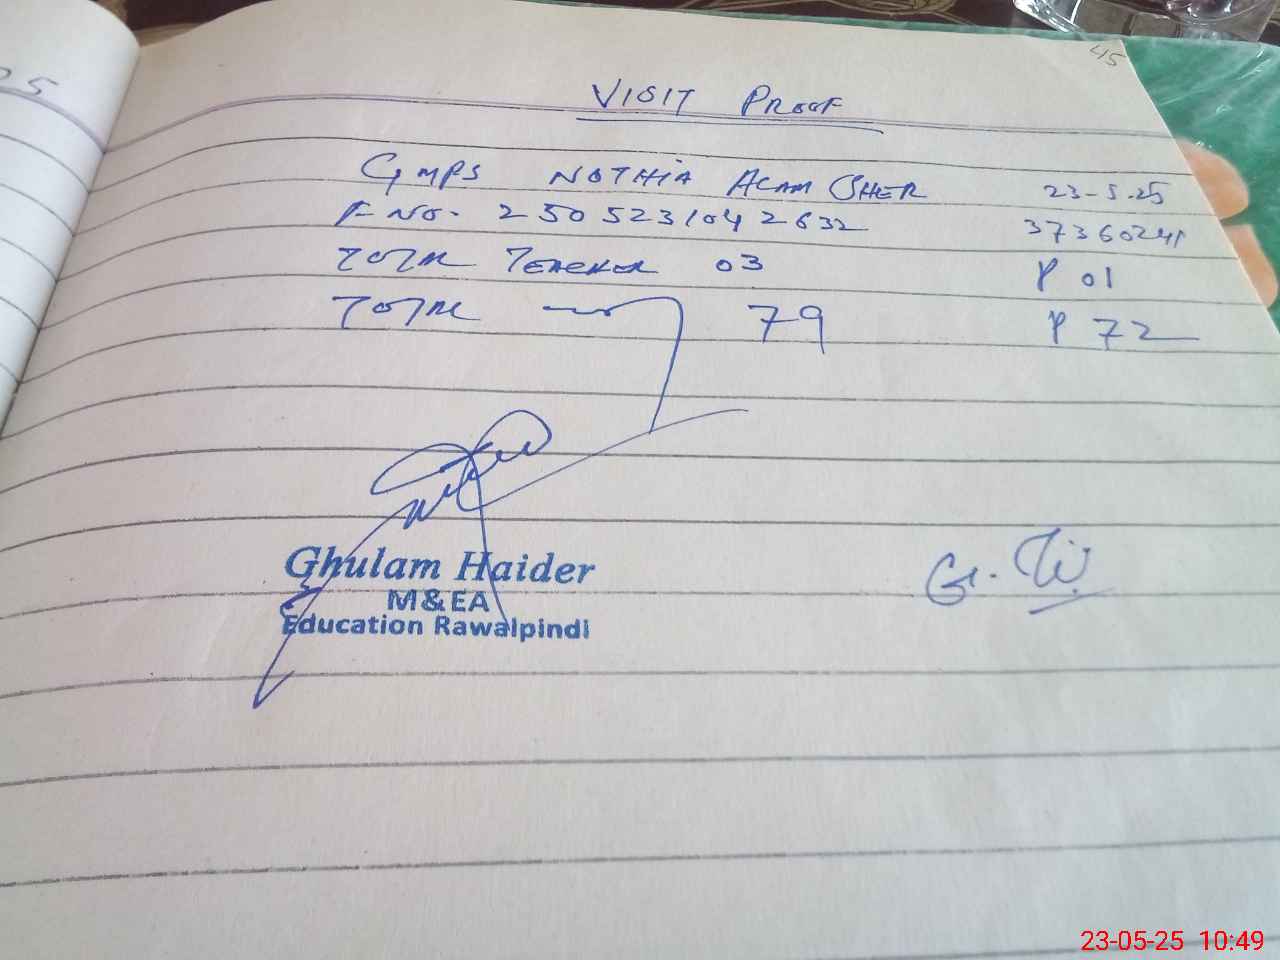 45
VISIT PROOF
GMPS NOTHIA ALAM SHER 23-5-25
F NO. 250523104 2632 37360241
TOTAL TEACHER 03 P 01
TOTAL 79 P 72
Ghulam Haider
M&EA
Education Rawalpindi
23-05-25 10:49